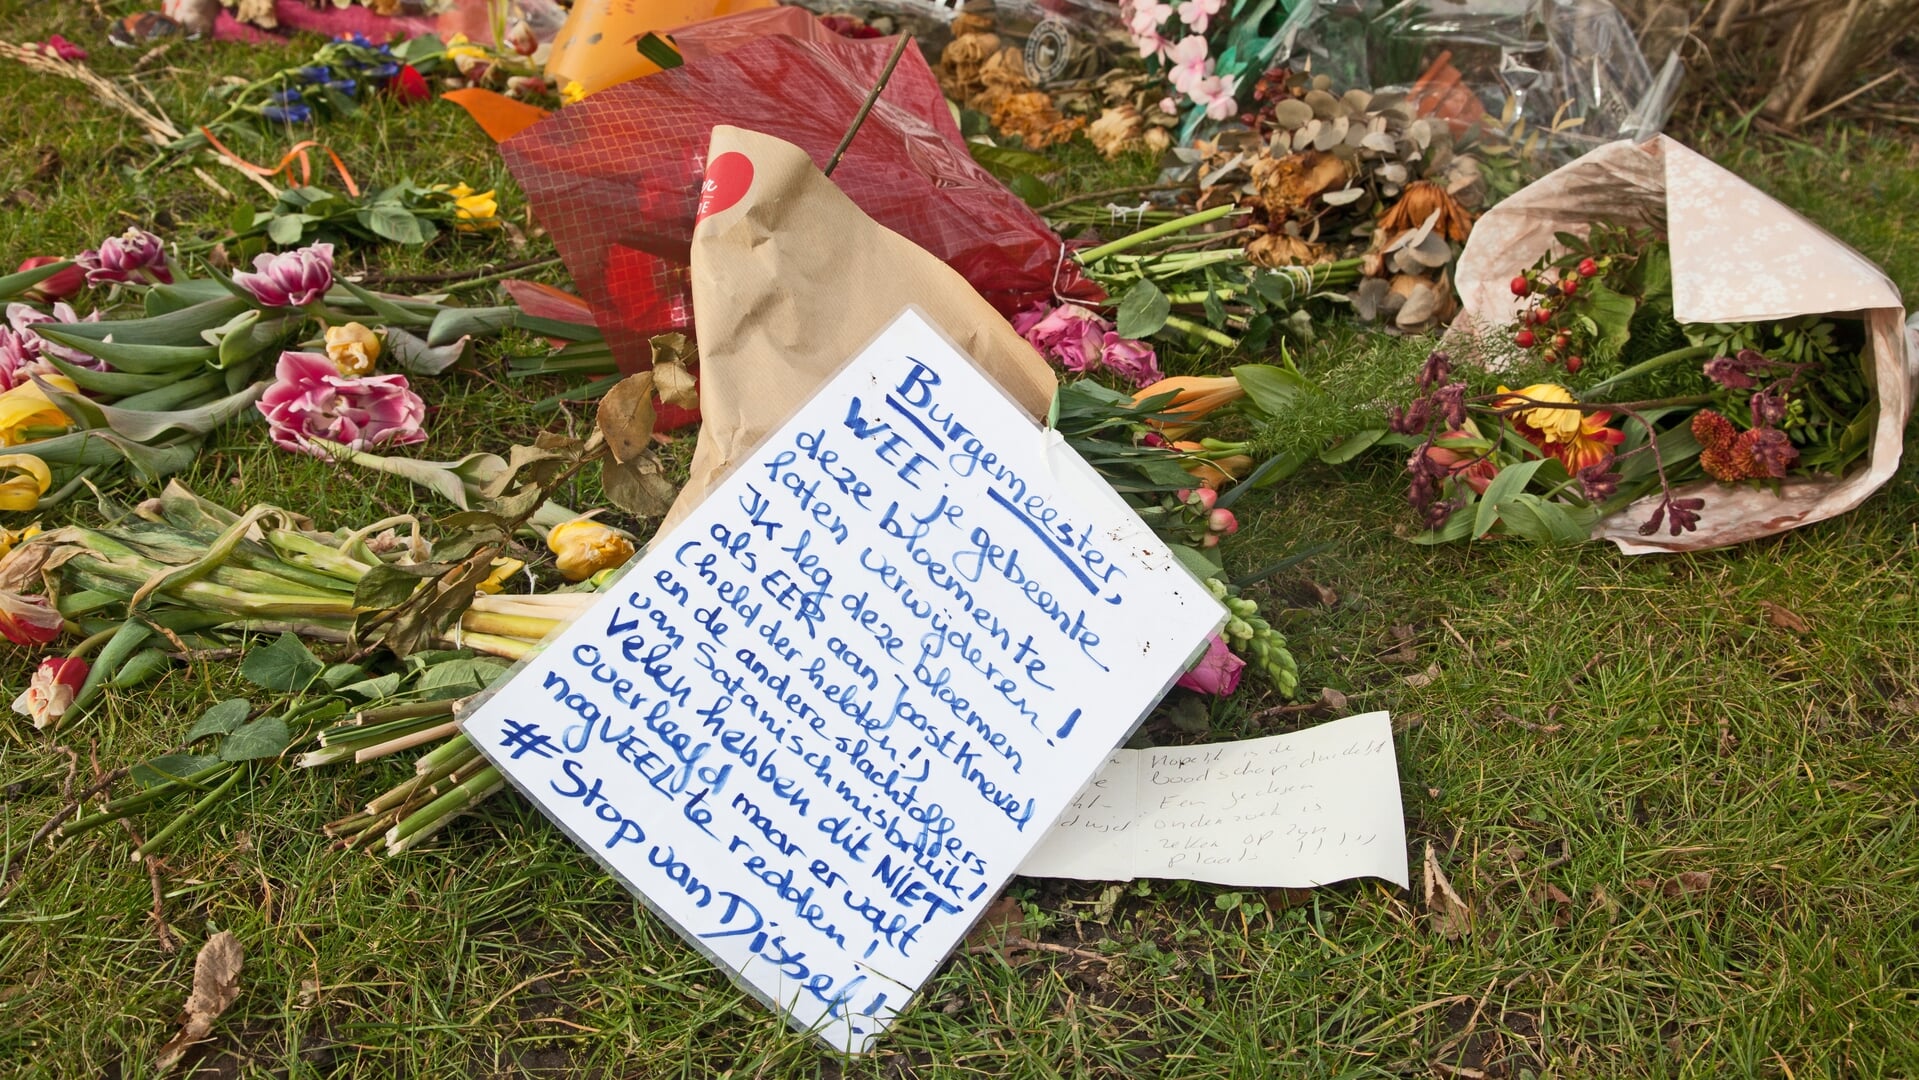 Burgemeester,
WEE je gebeente
deze bloemente
laten verwijderen!
Ik leg deze bloemen
als EER aan Joost Knevel
(held der helden!)
en de andere slachtoffers
van Satanisch misbruik!
Velen hebben dit NIET
overleefd maar er valt
nog VEEL te redden!
# Stop van Dissel!
Hopelijk is de
boodschap duidelijk
Een gedegen
onderzoek is
zeker op zijn
plaats !!!!!